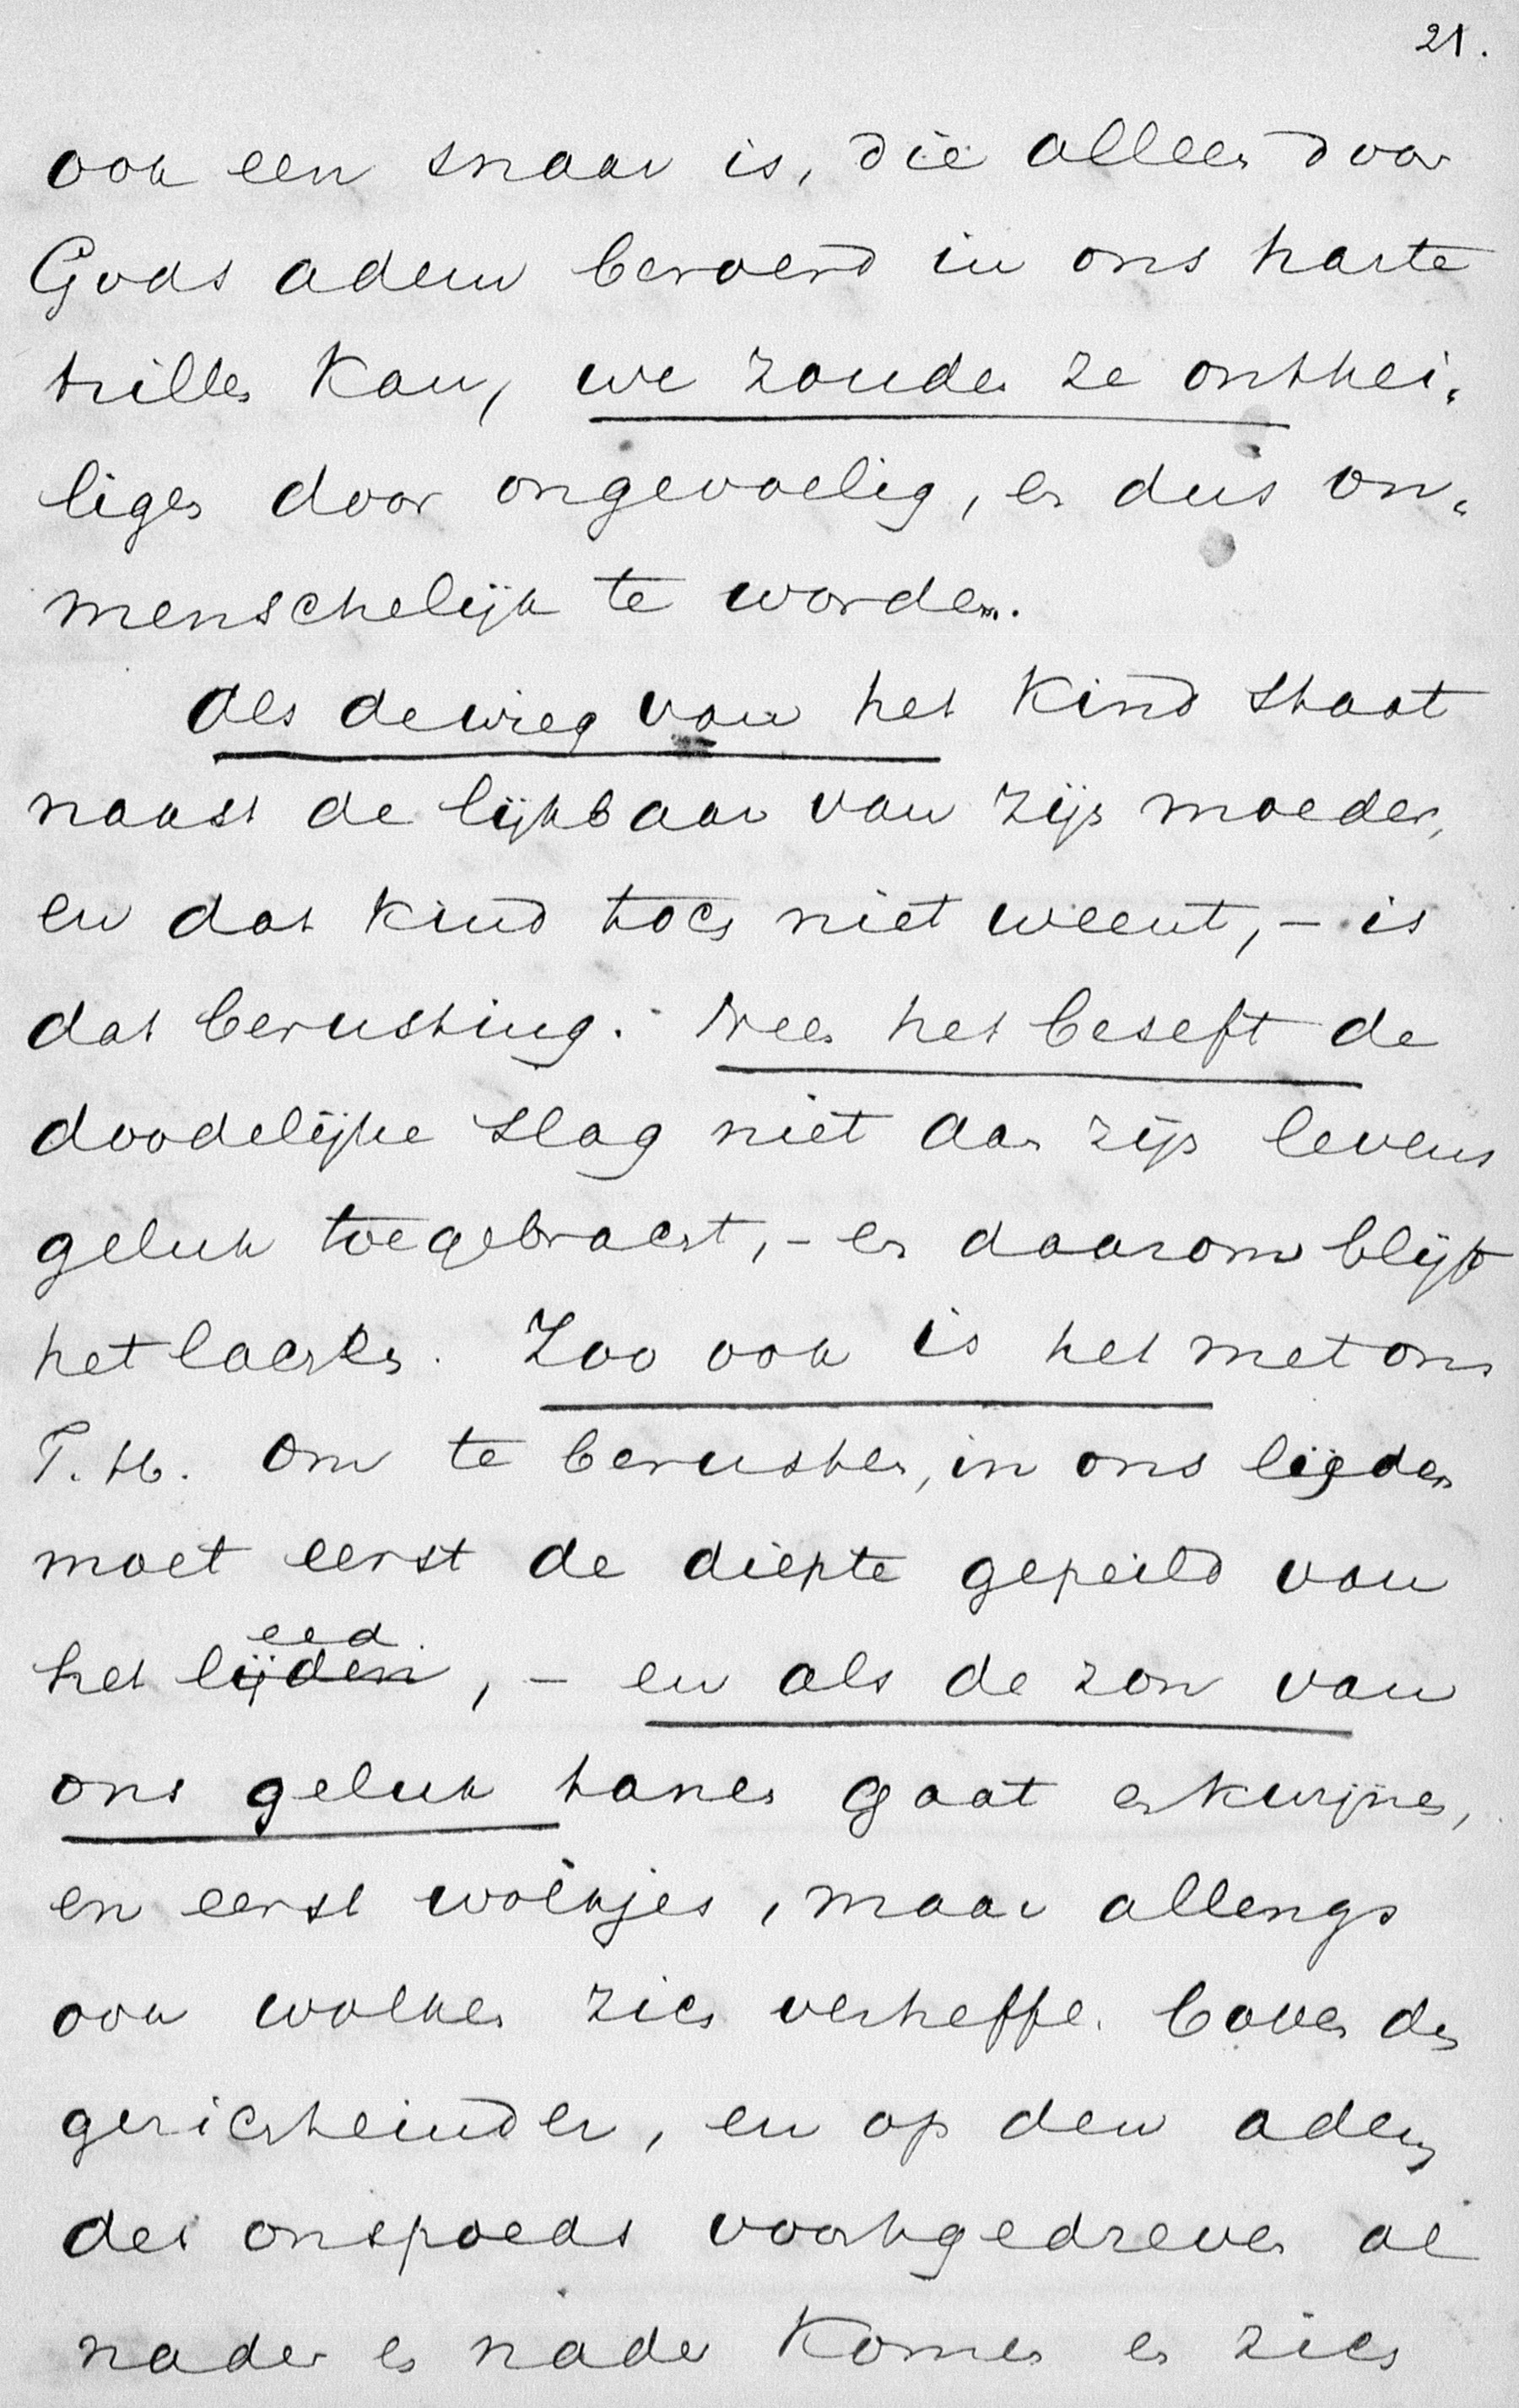 21.
ook een snaar is, die alleen door
Gods adem beroerd in ons harte
trillen kan, we zouden ze onthei„
ligen door ongevoelig, en dus on„
menschelijk te worden.
Als de wieg van het kind staat
naast de lijkbaar van zijn moeder,
en dat kind toch niet weent, – is
dat berusting. Neen het beseft de
doodelijke slag niet aan zijn levens
geluk toegebracht, – en daarom blijft
het lachen. Zoo ook is het met ons
T. H. Om te berusten, in ons lijden
moet eerst de diepte gepeild van
het lijden eed, – en als de zon van
ons geluk tanen gaat en kwijnen,
en eerst wolkjes, maar allengs
ook wolken zich verheffen boven den
gezichteinder, en op den adem
des onspoeds voortgedreven al
nader en nader komen en zich